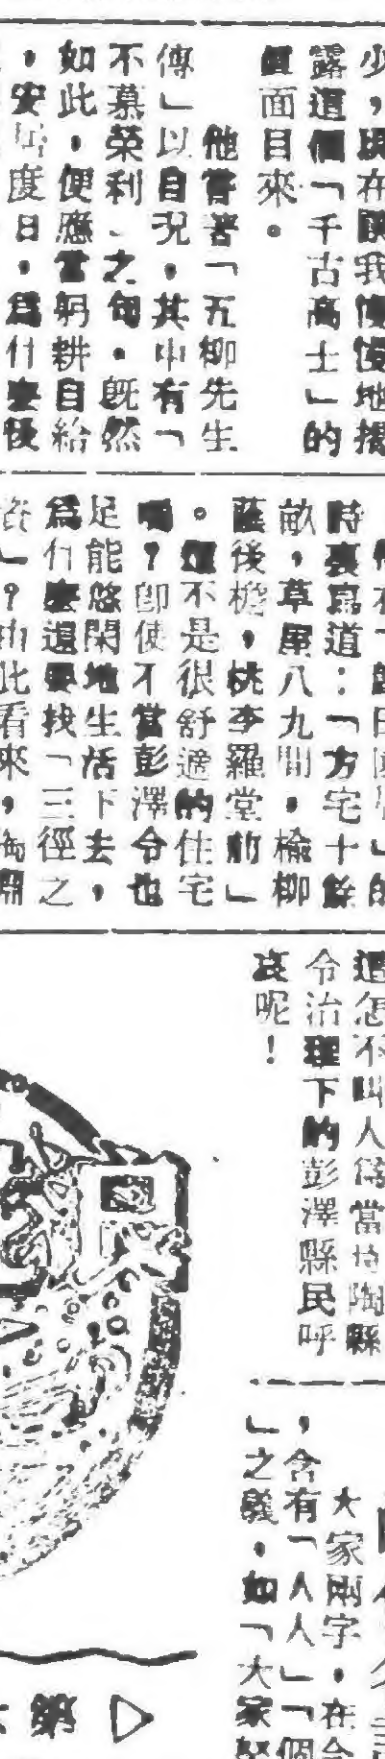 少，現在讓我慢慢地揭
露這個「千古高士」的
眞面目來。
他嘗著「五柳先生
傳」以自況，其中有「
不慕榮利」之句。旣然
如此，便應當躬耕自給
，安居度日，爲什麼後
時裏寫道：「方宅十餘
畝，草屋八九間，楡柳
蔭後檐，桃李羅堂前」
。還不是很舒適的住宅
嗎？卽使不當彭澤令也
足能悠閑地生活下去，
爲什麼還要找「三徑之
資」？由此看來，陶淵
這怎不叫人爲當時陶縣
令治理下的彭澤縣民呼
哀呢！
大家兩字，在今
，含有「人人」「個
」之義，如「大家努
▷第